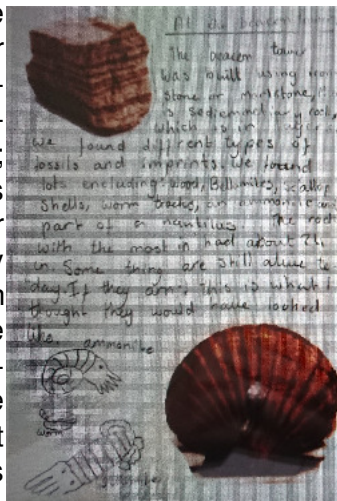 At the beacon tower
The beacon tower
was built using iron
stone or marlstone, it
is sedimentary rock,
which is in layers
We found different types of
fossils and imprints. We found
lots encluding: wood, Bellmites, scallop
shells, worm tracks, an ammonite and
part of a nautilus. The rock
with the most in had about 21
in. Some thing are still alive to
day. If they arn't this is what I
thought they would have looked
like. ammonite
worm